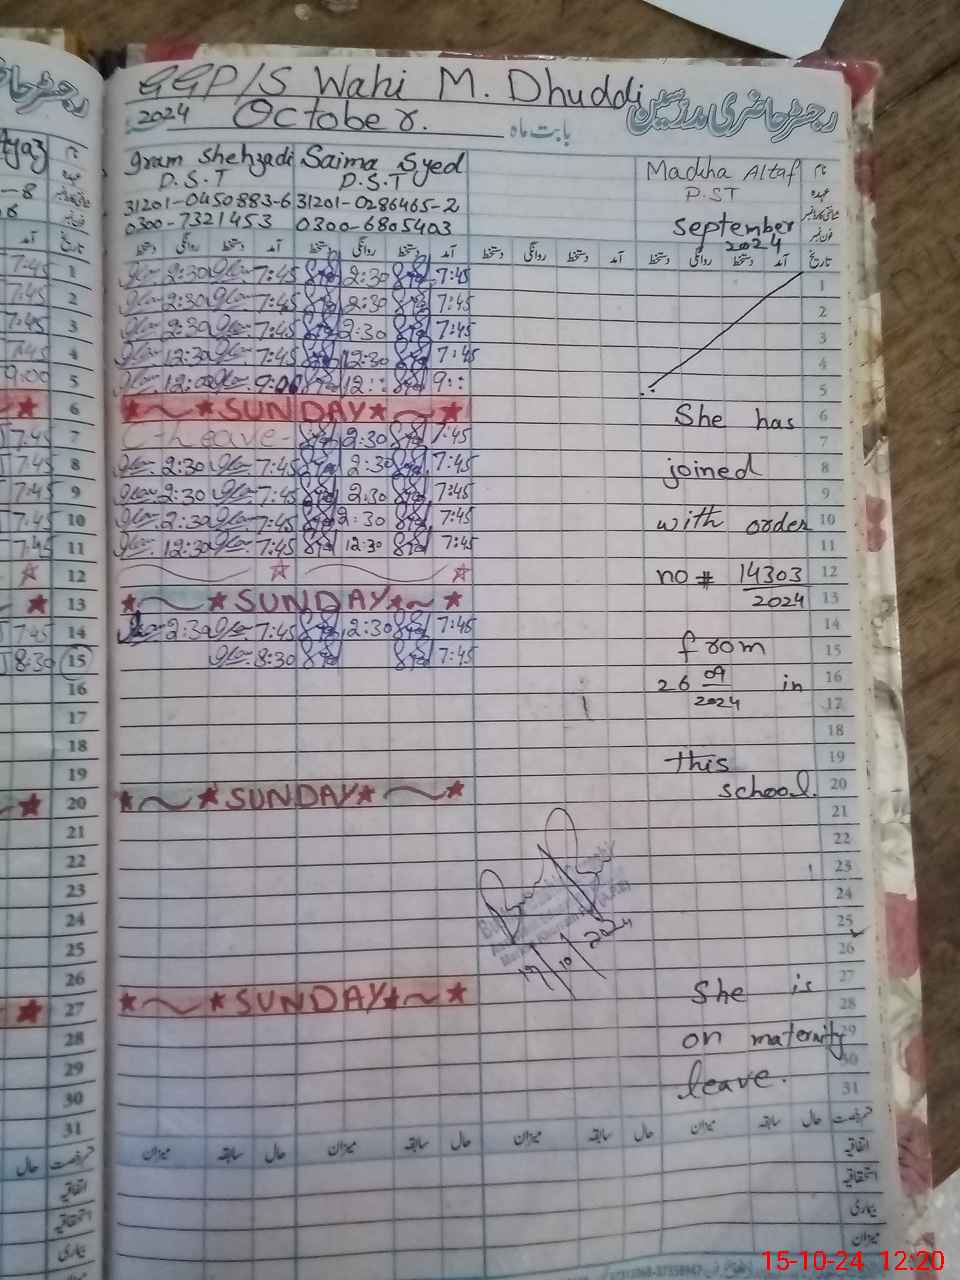 GGP/S Wahi M. Dhuddi
رجسٹر حاضری مدرسین
2024 October.
بابت ماہ
gram Shehzadi Saima Syed Madiha Altaf نام
P.S.T P.S.T P.ST عہدہ
31201-0450883-6 31201-0286465-2
0300-7321453 0300-6805403 September فون نمبر
2024
دستخط روانگی دستخط آمد دستخط روانگی دستخط آمد دستخط روانگی دستخط آمد دستخط روانگی دستخط آمد تاریخ
2:30 7:45 2:30 7:45 1
2:30 7:45 2:30 7:45 2
2:30 7:45 2:30 7:45 3
12:30 7:45 12:30 7:45 4
12:00 9:00 12:: 9:: 5
SUNDAY She has 6
C-Leave- 2:30 7:45 7
2:30 7:45 2:30 7:45 joined 8
2:30 7:45 2:30 7:45 9
2:30 7:45 2:30 7:45 with order 10
12:30 7:45 12:30 7:45 11
no# 14303 12
SUNDAY 2024 13
2:30 7:45 2:30 7:45 14
8:30 7:45 from 15
26 09 in 16
2024 17
18
this 19
SUNDAY school. 20
21
22
23
24
25
26
She is 27
SUNDAY 28
on maternity 29
30
leave. 31
17/10/2024
میزان سابقہ حال میزان سابقہ حال میزان سابقہ حال میزان سابقہ حال قسم رخصت
اتفاقیہ
استحقاقیہ
بیماری
میزان
7:45 1
7:45 2
7:45 3
7:45 4
9:00 5
6
7:45 7
7:45 8
7:45 9
7:45 10
7:45 11
12
13
7:45 14
8:30 15
16
17
18
19
20
21
22
23
24
25
26
27
28
29
30
31
حال قسم رخصت
اتفاقیہ
استحقاقیہ
بیماری
15-10-24 12:20